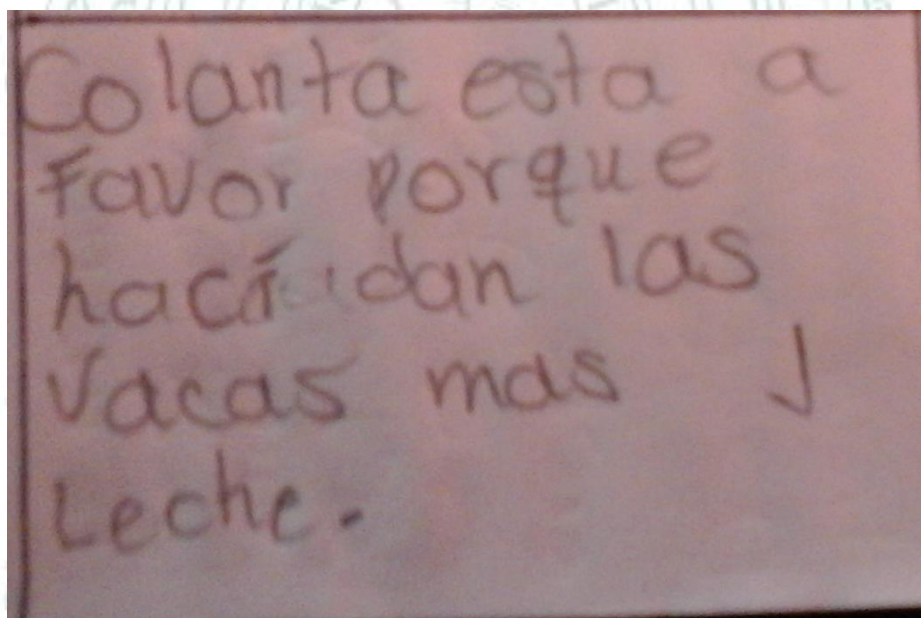 Colanta esta a
Favor porque
hací dan las
Vacas mas
Leche.